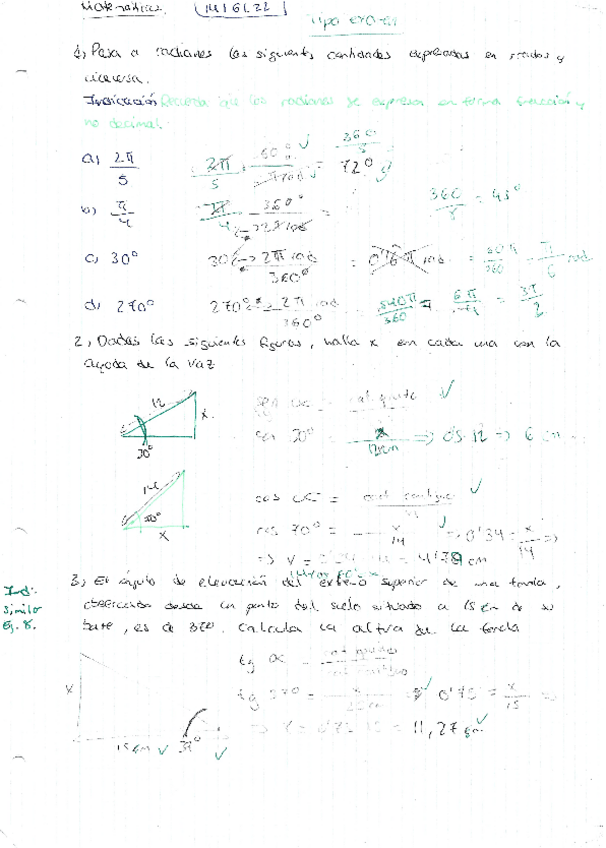 Matemáticas 14/6/22
Tipo examen
1) Pasa a radianes las siguientes cantidades expresadas en grados y
viceversa.
Indicación Recuerda que los radianes se expresan en forma fracción y
no decimal.
a) 2π/5 2π/5 · 360°/2π rad = 360/5 72°
b) π/4 π/4 · 360°/2π rad = 360/8 = 45°
c) 30° 30° · 2π rad/360° = 0'16 π rad = 60π/360 = π/6 rad
d) 270° 270° · 2π rad/360° = 540π/360 = 6π/4 = 3π/2
2) Dadas las siguientes figuras, halla x en cada una con la
ayuda de la
12 x 30°
sen α = cat opuesto
sen 30° = x/12cm => 0'5·12 => 6 cm
14 70° x
cos α = cat contiguo
cos 70° = x/14 => 0'34 = x/14 =>
=> x = 0'34 · 14 = 4'78 cm
Ind:
Similar
Ej. 8.
3) El ángulo de elevación del extremo superior de una
observada desde un punto del suelo situado a 15 de su
base, es de 37°. Calcula la altura de la
x 15 37°
tg α = cat opuesto/cat contiguo
tg 37° = x/15 => 0'75 = x/15 =>
=> x = 0'75·15 = 11,27